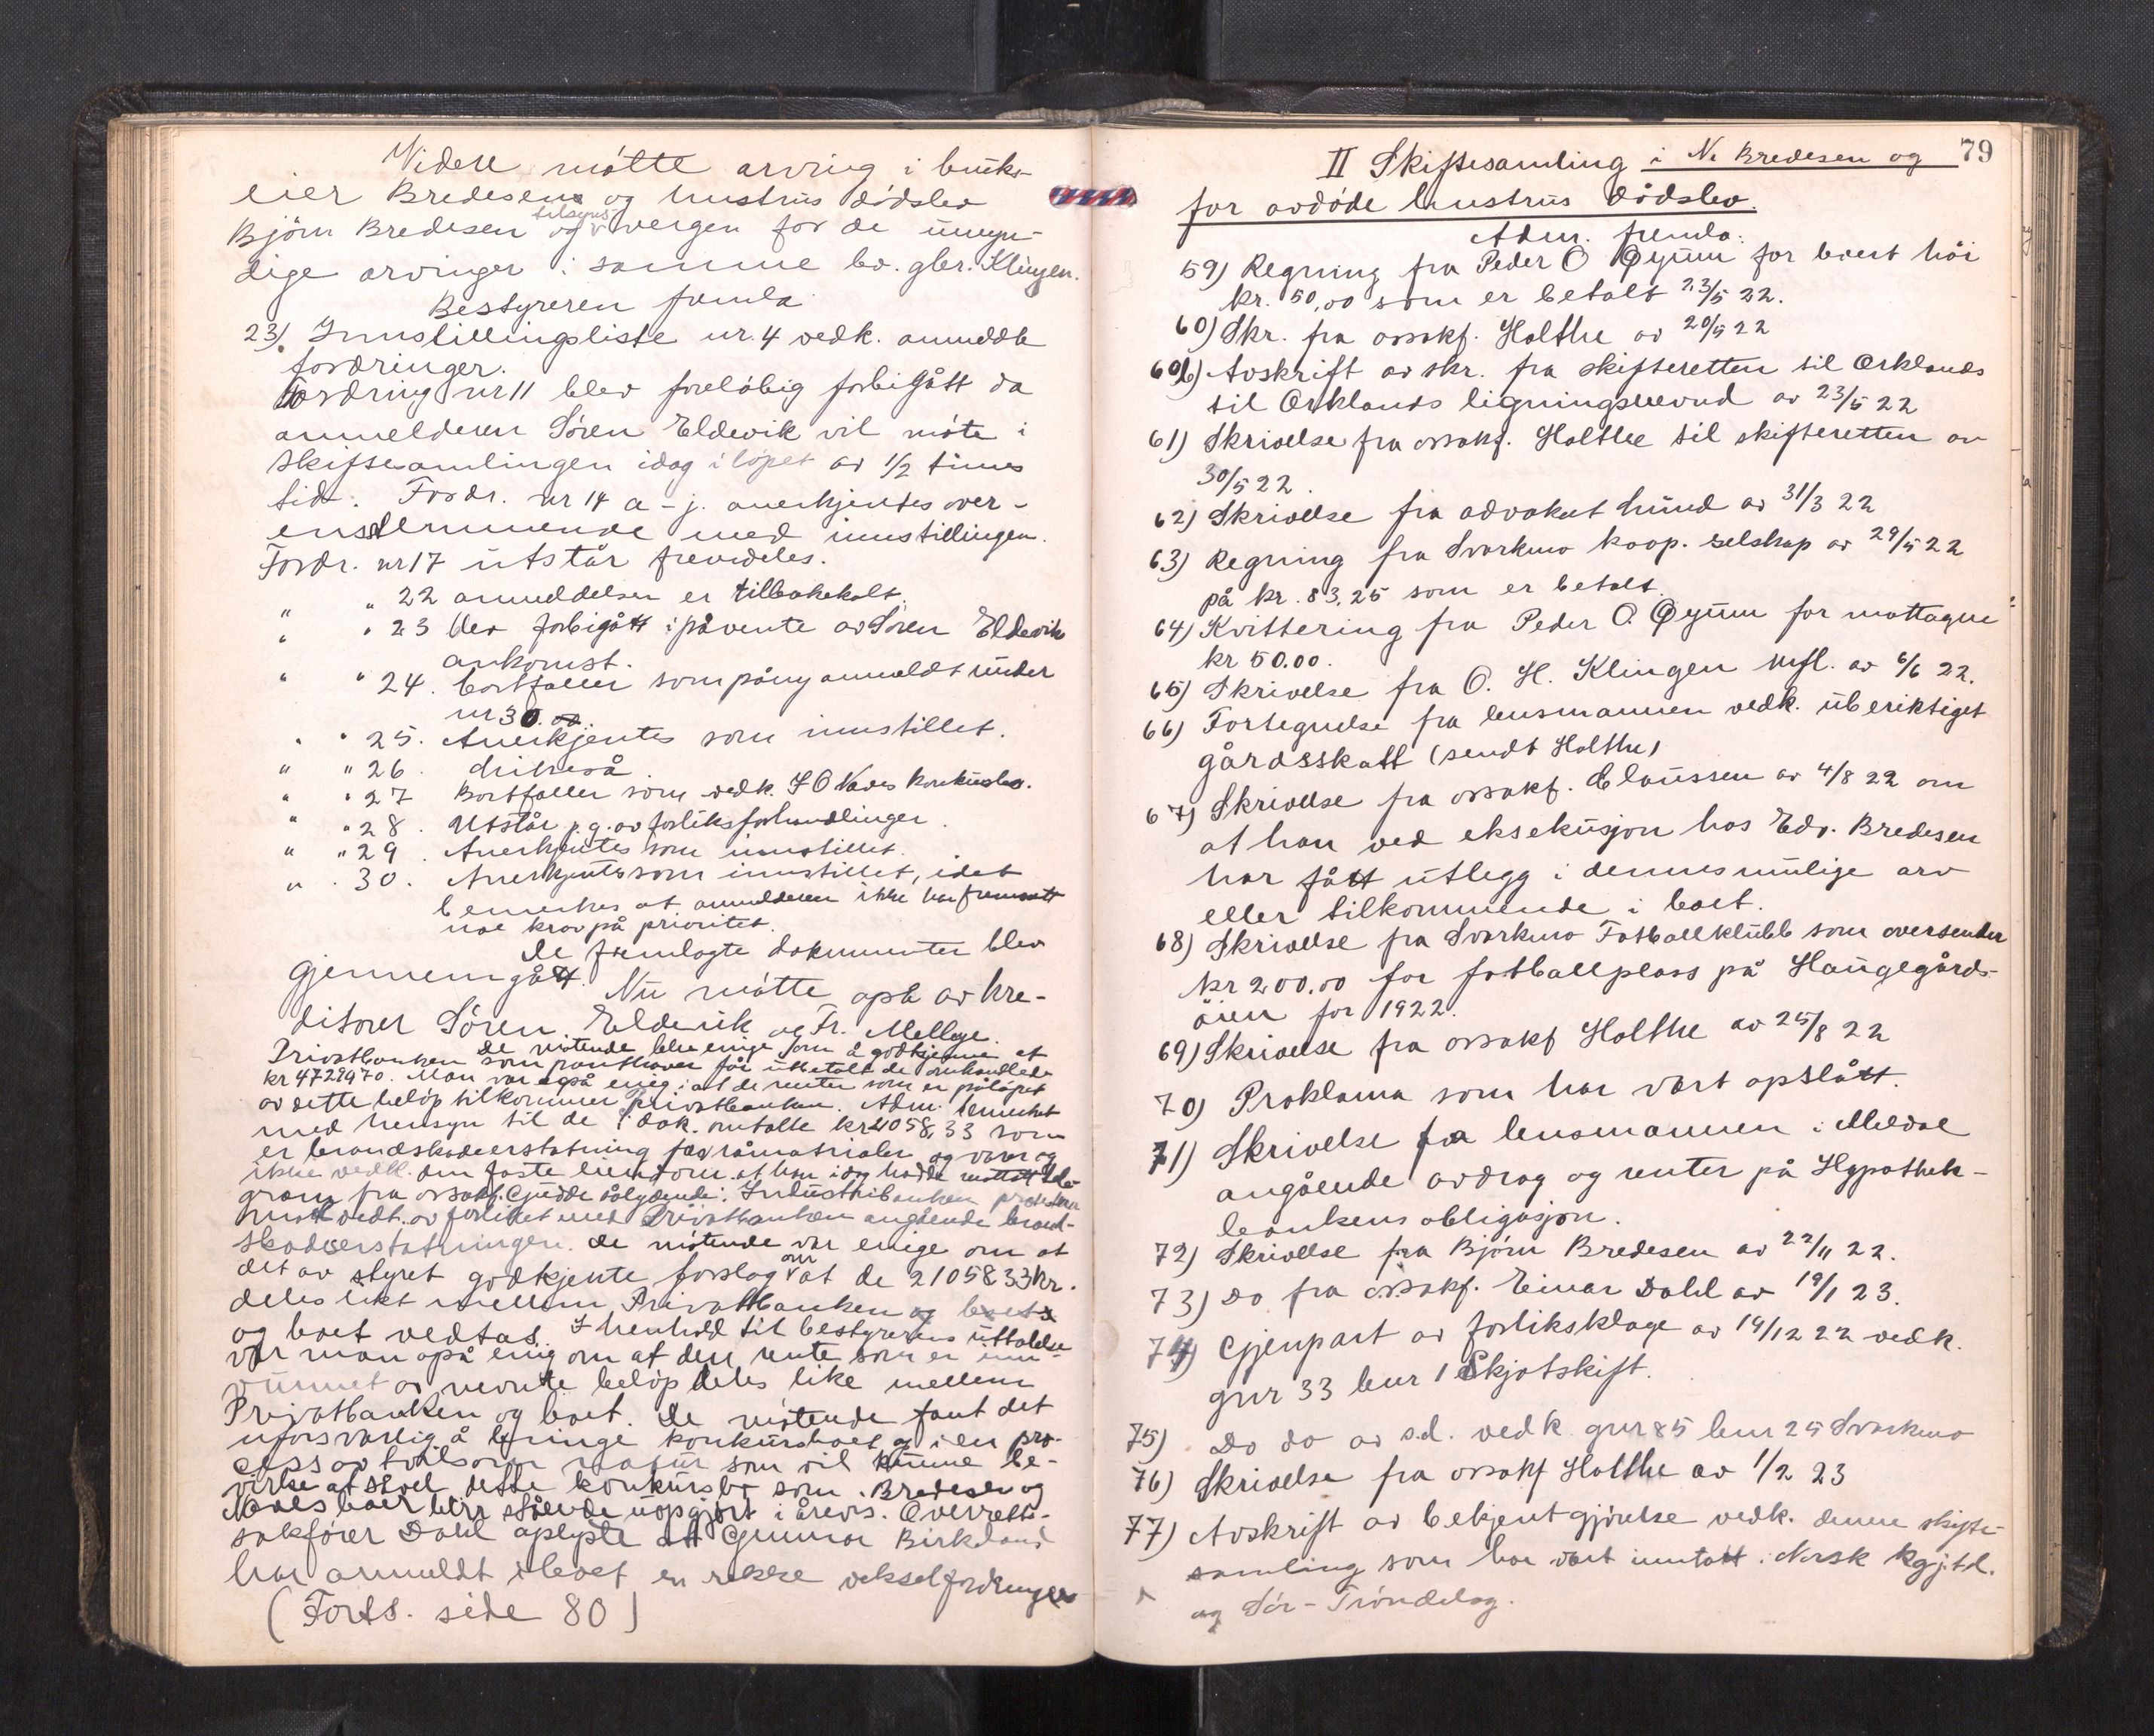 Videre møtte arving i bruks-
eier Bredesens og hustrus dødsbo
Bjørn Bredesen og tilsyns vergen for de umyn-
dige arvinger i samme bo. gbr. Klingen.
Bestyreren fremla
23) Innstillingsliste nr. 4 vedk. anmeldte
fordringer.
Fordring nr 11 blev foreløbig forbigått da
anmelderen Søren Eldevik vil møte i
skiftesamlingen idag i løpet av 1/2 times
tid. Fordr. nr 14 a - j. anerkjentes over-
ensstemmende med innstillingen.
Fordr. nr 17 utstår fremdeles.
" " 22 anmeldelsen er tilbakekalt.
" " 23 blev forbigått i påvente av Søren Eldeviks
ankomst.
" " 24. bortfaller som påny anmeldt under
nr 30.
" " 25. Anerkjentes som innstillet.
" " 26. likeså.
" " 27 Bortfaller som vedk. J O Naves konkursbo.
" " 28. Utstår p. g. av forliksforhandlinger.
" " 29. Anerkjentes som innstillet.
" " 30. Anerkjentes som innstillet, idet
bemerkes at anmelderen ikke har fremsatt
noe krav på prioritet.
De fremlagte dokumenter blev
gjennemgått. Nu møtte også av kre-
ditorer Søren Eldevik og Fr. Mellbye.
De møtende blev enige om å godkjenne at
Privatbanken som panthaver får utbetalt de omhandlede
kr 4729970. Man var også enig i at de renter som er påløpet
av dette beløp tilkommer Privatbanken. Adm. bemerket
med hensyn til de i dok. omtalte kr 21058,33 som
er brandskadeerstatning for råmaterialer og varer og
ikke vedk. den faste eiendom at han idag hadde mottatt tele-
gram fra ovrsakf. Gjedde sålydende: Industribanken
vedt. av forliket med Privatbanken angående brand-
skadeerstatningen. De møtende var enige om at
det av styret godkjente forslag om at de 2105833 kr.
deles likt mellem Privatbanken og boets
og boet vedtas. I henhold til bestyrerens uttalelse
var man også enig om at den rente som er inn-
vunnet av nevnte beløp deles like mellem
Privatbanken og boet. De møtende fant det
uforsvarlig å bringe konkursboet og i en pro-
cess av tvilsom natur som vil kunne be-
virke at såvel dette konkursbo som Bredesen og
Naves boer blir stående uopgjort i årevis. Overretts-
sakfører Dahl oplyste at Gunnar Birkeland
har anmeldt i boet en rekke vekselfordringer
(Forts. side 80)
79
II Skiftesamling i N. Bredesen og
for avdøde hustrus dødsbo.
Adm. fremla:
59) Regning fra Peder O Øyum for levert høi
kr. 50,00 som er betalt 23/5 22.
60) Skr. fra ovrsakf. Holthe av 20/5 22
60b) Avskrift av skr. fra skifteretten til Orklands
til Orklands ligningsnevnd av 23/5 22
61) Skrivelse fra ovrsakf. Holthe til skifteretten av
30/5 22.
62) Skrivelse fra advokat Lund av 31/3 22
63) Regning fra Svorkmo koop. selskap av 29/5 22
på kr. 83,25 som er betalt.
64) Kvittering fra Peder O. Øyum for mottagne
kr 50.00.
65) Skrivelse fra O. H. Klingen mfl. av 6/6 22.
66) Fortegnelse fra lensmannen vedk. uberiktiget
gårdsskatt (sendt Holthe)
67) Skrivelse fra ovrsakf. Claussen av 4/8 22 om
at han ved eksekusjon hos Edv. Bredesen
har fått utlegg i dennes mulige arv
eller tilkommende i boet.
68) Skrivelse fra Svorkmo Fotballklubb som oversender
kr 200.00 for fotballplass på Haugegårds-
øien for 1922.
69) Skrivelse fra ovrsakf Holthe av 25/8 22
70) Proklama som har vært opslått.
71) Skrivelse fra lensmannen i Meldal
angående avdrag og renter på Hypothek-
bankens obligasjon.
72) Skrivelse fra Bjørn Bredesen av 22/11 22.
73) Do fra ovrsakf. Einar Dahl av 19/1 23.
74) Gjenpart av forliksklage av 19/12 22 vedk.
gnr 33 bnr 1 Skjøtskift.
75) Do do av s.d. vedk. gnr 85 bnr 25 Svorkmo
76) Skrivelse fra ovrsakf Holthe av 1/2 23
77) Avskrift av bekjentgjørelse vedk. denne skifte-
samling som har vært inntatt i Norsk kgj.td.
og Sør-Trøndelag.